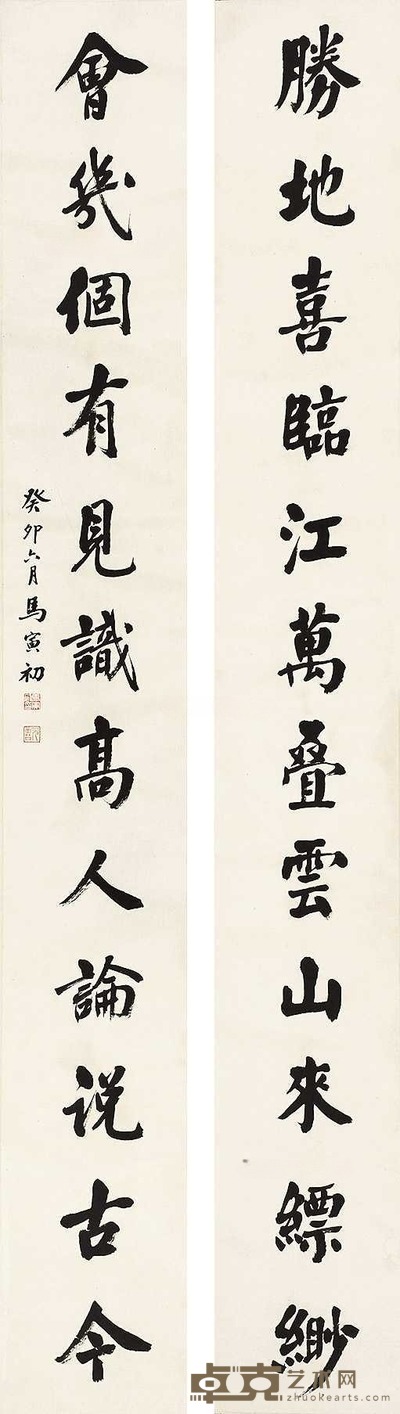 勝地喜臨江萬叠雲山來縹緲
會幾個有見識高人論说古今
癸卯六月馬寅初
卓克艺术网
zhuokearts.com